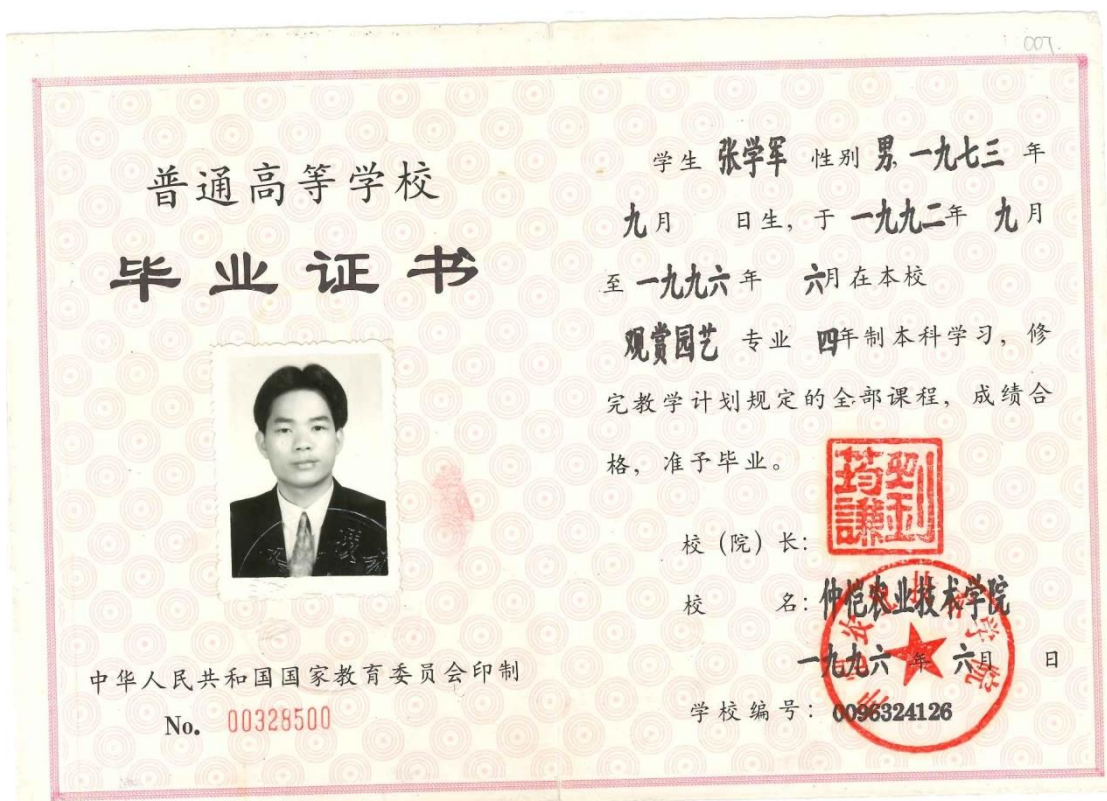 007.
普通高等学校
毕业证书
中华人民共和国国家教育委员会印制
No. 00328500
学生 张学军 性别 男, 一九七三 年
九月 日生, 于 一九九二年 九月
至 一九九六 年 六月在本校
观赏园艺 专业 四年制本科学习, 修
完教学计划规定的全部课程, 成绩合
格, 准予毕业。
校 (院) 长:
校 名: 仲恺农业技术学院
一九九六 年 六月 日
学校编号: 0096324126